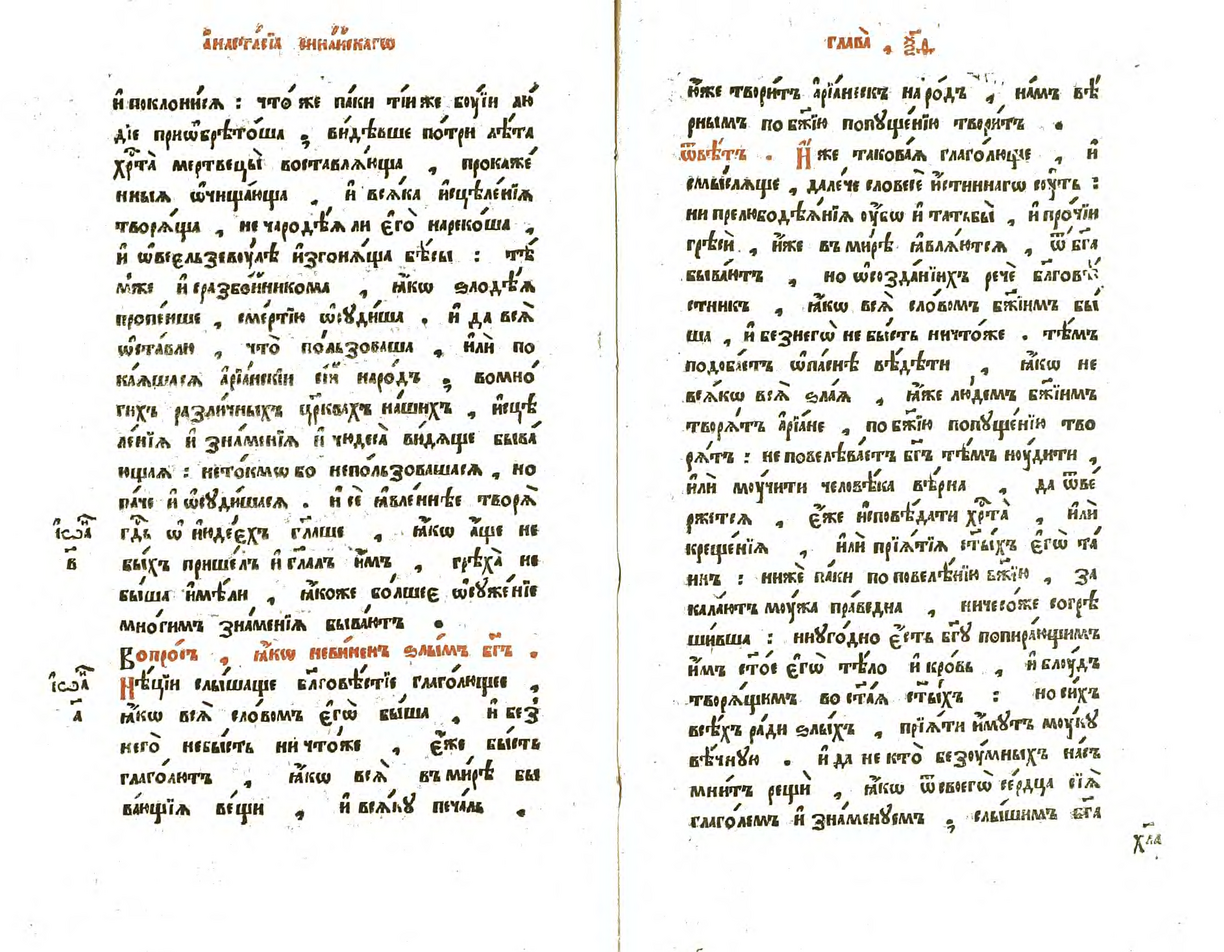 а҆наста́сїа сїна́йскагѡ
и҆ поклони́сѧ : что́ же па́ки ті́и же боу́їи лю́
дїе приѡбрѣто́ша ; ви́дѣвше по́ три лѣ́та
хрⷭ҇та̀ мертвецы̀ воставлѧ́юща , прокаже́
нныѧ ѡ҆чища́юща , и҆ всѧ́ка и҆сцѣле́нїѧ
творѧ́ща , не чародѣ́ѧ ли є҆го̀ нареко́ша ,
и҆ ѡ҆ веельзеву́лѣ и҆згонѧ́ща бѣ́сы : тѣ́
мже и҆ с разбо́йникома , ꙗ҆́кѡ ѕлодѣ́ѧ
пропе́нше , сме́ртїю ѡ҆суди́ша . и҆ да всѧ̀
ѡ҆ста́влю , что̀ по́льзоваша , и҆лѝ по
ка́ѧшасѧ а҆рїа́нскїи се́й наро́дъ ; во мно́
гихъ разли́чныхъ цр҃квахъ на́шихъ , и҆сцѣ
ле́нїѧ и҆ зна́менїѧ и҆ чюдеса̀ ви́дѧще быва́
ющаѧ : не то́кмѡ бо не по́льзовашасѧ , но
па́че и҆ ѡ҆суди́шасѧ . и҆ се́ ꙗ҆вле́ннѣе творѧ̀
гдⷭ҇ь ѡ҆ и҆юде́ехъ гл҃аше , ꙗ҆́кѡ а҆́ще не
бы́хъ прише́лъ и҆ гл҃алъ и҆̀мъ , грѣха̀ не
бы́ша и҆мѣ́ли , ꙗ҆́коже бо́лшее ѡ҆сужде́нїе
мно́гимъ зна́менїѧ быва́ютъ .
Вопро́съ , ꙗ҆́кѡ неви́ненъ ѕлы́мъ бг҃ъ .
Нѣ́цїи слы́шаще бл҃говѣ́стїе глаго́лющее ,
ꙗ҆́кѡ всѧ̀ сло́вомъ є҆гѡ̀ бы́ша , и҆ без̾
него̀ не бы́сть ничто́же , є҆́же бы́сть
глаго́лютъ , ꙗ҆́кѡ всѧ̀ въ ми́рѣ бы
ва́ющїѧ ве́щи , и҆ всѧ́ку печа́ль .
і҆ѡа҃
в҃
і҆ѡа҃
а҃
глава̀ ,
ю҆́же твори́тъ а҆рїа́нескъ наро́дъ , на́мъ вѣ́
рнымъ по бж҃їю попуще́нїю твори́тъ .
Ѿвѣ́тъ . И҆̀же такова́ѧ глаго́люще , и҆
смы́слѧще , дале́че словесѐ и҆́стиннагѡ су́ть :
ни прелюбодѣѧ́нїѧ оу҆́бѡ и҆ татьбы̀ , и҆ про́чїи
грѣсѝ , и҆̀же въ ми́рѣ ꙗ҆влѧ́ютсѧ , ѿ бг҃а
быва́ютъ , но ѡ҆ созда́нїихъ речѐ бл҃говѣ́
стникъ , ꙗ҆́кѡ всѧ̀ сло́вомъ бж҃їимъ бы́
ша , и҆ без̾ негѡ̀ не бы́сть ничто́же . тѣ́мъ
подоба́етъ ѡ҆па́снѣ вѣ́дѣти , ꙗ҆́кѡ не
всѧ́кѡ всѧ̀ ѕла́ѧ , ꙗ҆̀же лю́демъ бж҃їимъ
творѧ́тъ а҆рїа́не , по бж҃їю попуще́нїю тво
рѧ́тъ : не повелѣва́етъ бг҃ъ тѣ́мъ ноу́дити ,
и҆лѝ моу́чити человѣ́ка вѣ́рна , да ѿве́
ржетсѧ , є҆́же и҆сповѣ́дати хрⷭ҇та̀ , и҆лѝ
креще́нїѧ , и҆лѝ прїѧ́тїѧ ст҃ы́хъ є҆гѡ̀ та́
инъ : нижѐ па́ки по повелѣ́нїю бж҃їю , за
кала́ютъ моу́жа пра́ведна , ничесо́же согрѣ
ши́вша : ни уго́дно є҆́сть бг҃у попира́ющимъ
и҆̀мъ ст҃о́е є҆гѡ̀ тѣ́ло и҆ кро́вь , и҆ блоу́дъ
творѧ́щимъ во ст҃а́ѧ ст҃ы́хъ : но си́хъ
всѣ́хъ ра́ди ѕлы́хъ , прїѧ́ти и҆́мутъ моу́ку
вѣ́чную . и҆ да не кто̀ безоу́мныхъ на́съ
мни́тъ рещѝ , ꙗ҆́кѡ ѿ своегѡ̀ се́рдца сїѧ̀
глаго́лемъ и҆ зна́менуемъ ; слы́шимъ бг҃а